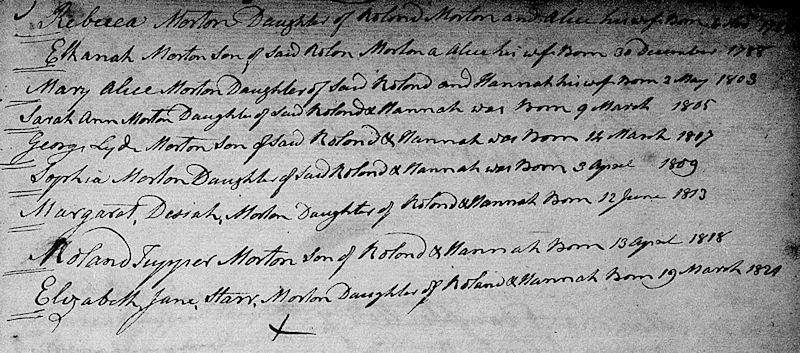 Rebecca Morton Daughter of Rolond Morton and Alice his wif Born
Elkanah Morton Son of Said Rolon Morton & Alice his wif Born 30 December 1788
Mary Alice Morton Daughter of Said Rolond and Hannah his wif Born 2 May 1803
Sarah Ann Morton Daughter of Said Rolond & Hannah was Born 9 March 1805
Georg Lyde Morton Son of Said Rolond & Hannah was Born 14 March 1807
Sophia Morton Daughter of Said Rolond & Hannah was Born 3 April 1809
Margarat, Desiah, Morton Daughter of Rolond & Hannah Born 12 June 1813
Roland Tupper Morton Son of Rolond & Hannah Born 13 April 1818
Elizabeth, Jane, Starr, Morton Daughter of Rolond & Hannah Born 19 March 1821
X